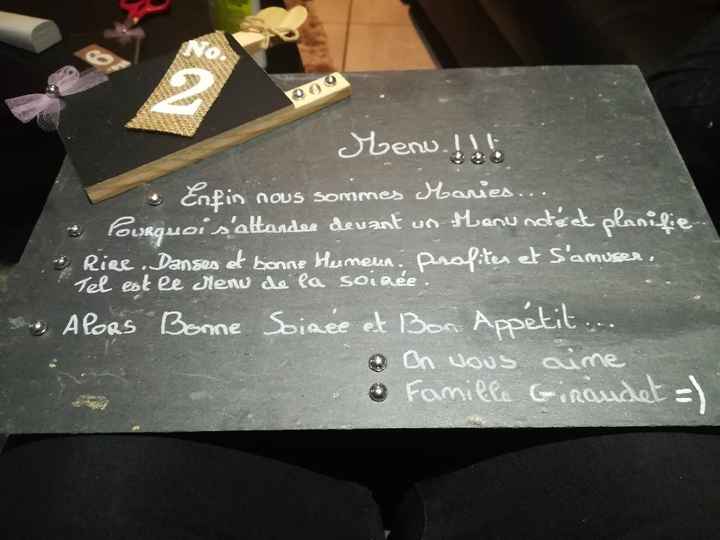 No.
2
6
Menu !!!
Enfin nous sommes Mariés...
Pourquoi s'attarder devant un Menu noté et planifié...
Rire, Danses et bonne Humeur. Profiter et S'amuser,
Tel est le Menu de la soirée.
Alors Bonne Soirée et Bon Appétit...
On vous aime
Famille Giraudet =)